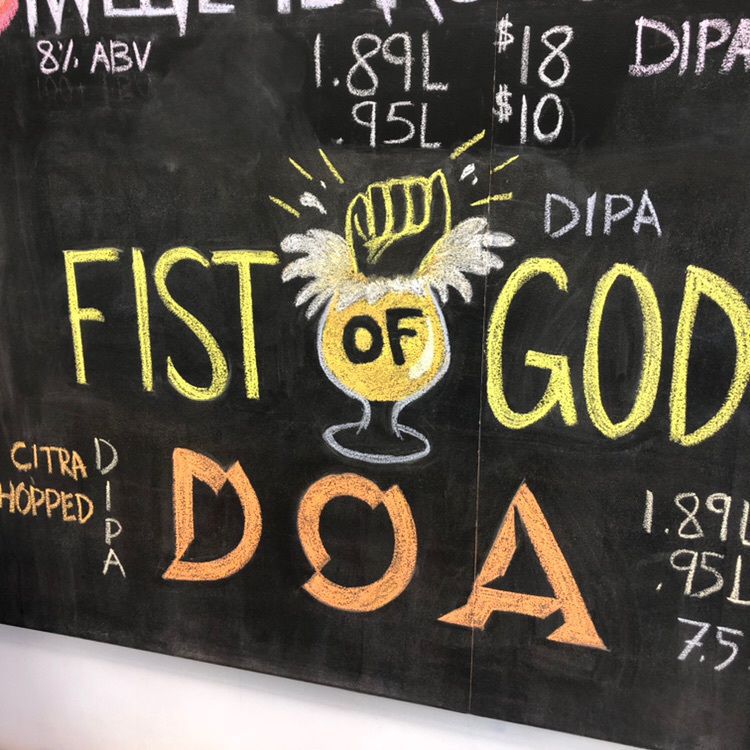 8% ABV
1.89L $18
.95L $10
DIPA
DIPA
FIST OF GOD
CITRA
HOPPED
DIPA
DOA
1.89L
.95L
7.5